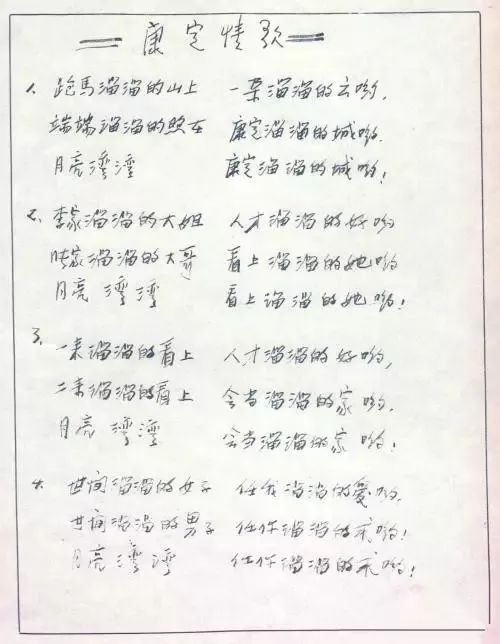 康定情歌
1. 跑馬溜溜的山上 一朶溜溜的云哟,
端端溜溜的照在 康定溜溜的城哟.
月亮灣灣 康定溜溜的城哟!
2. 李家溜溜的大姐 人才溜溜的好哟
张家溜溜的大哥 看上溜溜的她哟
月亮灣灣 看上溜溜的她哟!
3. 一来溜溜的看上 人才溜溜的好哟,
二来溜溜的看上 会当溜溜的家哟.
月亮灣灣 会当溜溜的家哟!
4. 世间溜溜的女子 任我溜溜的爱哟.
世间溜溜的男子 任你溜溜的求哟!
月亮灣灣 任你溜溜的求哟!